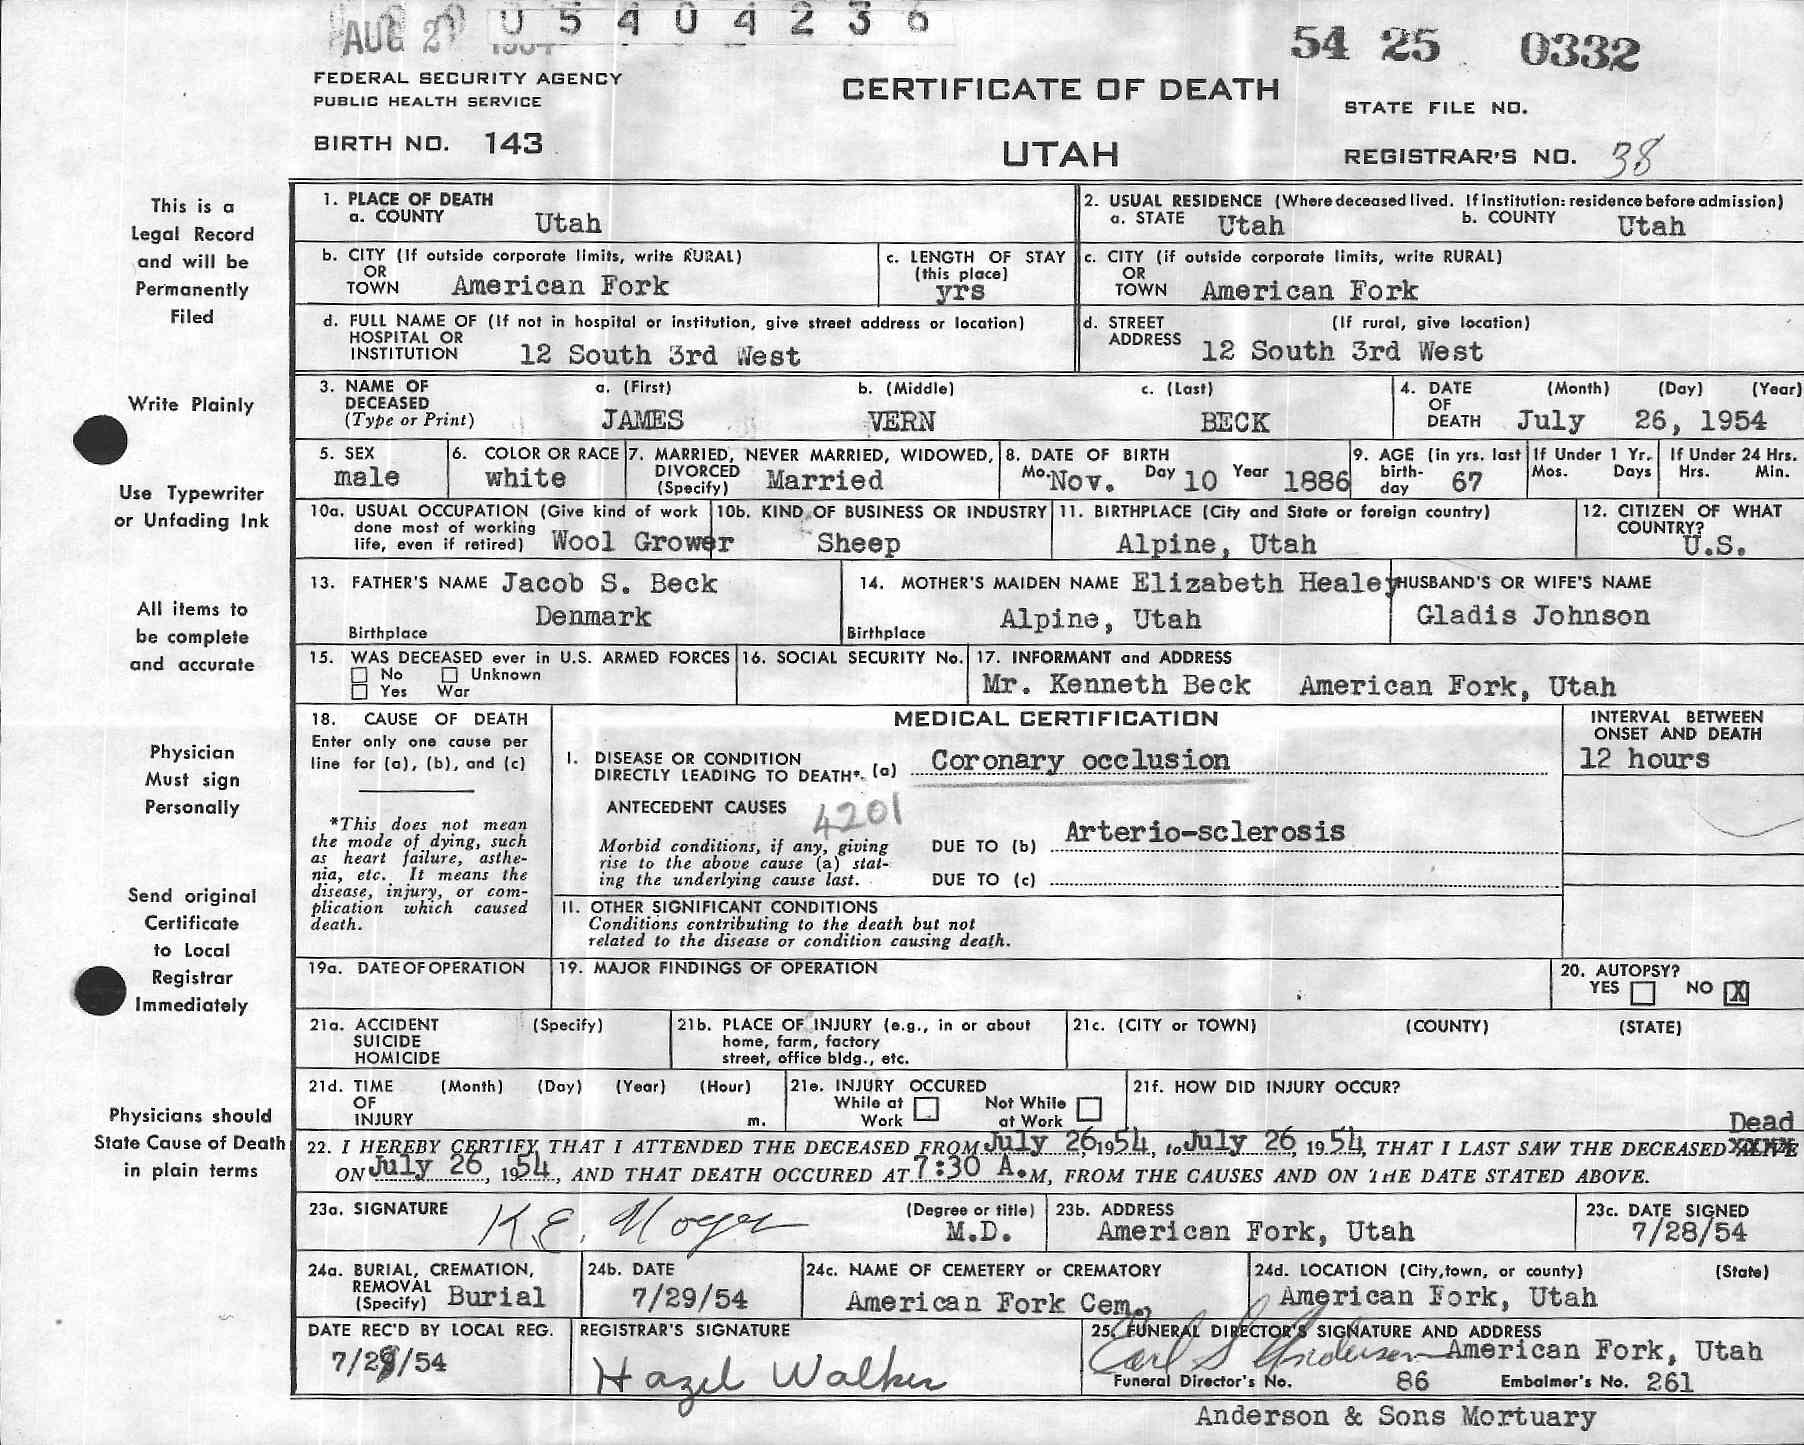 AUG 2
0 5 4 0 4 2 3 6
54 25 0332
FEDERAL SECURITY AGENCY
PUBLIC HEALTH SERVICE
CERTIFICATE OF DEATH
STATE FILE NO.
BIRTH NO. 143
UTAH
REGISTRAR'S NO. 38
This is a
Legal Record
and will be
Permanently
Filed
Write Plainly
Use Typewriter
or Unfading Ink
All items to
be complete
and accurate
Physician
Must sign
Personally
Send original
Certificate
to Local
Registrar
Immediately
Physicians should
State Cause of Death
in plain terms
1. PLACE OF DEATH
a. COUNTY Utah
2. USUAL RESIDENCE (Where deceased lived. If institution: residence before admission)
a. STATE Utah b. COUNTY Utah
b. CITY (If outside corporate limits, write RURAL)
OR
TOWN American Fork
c. LENGTH OF STAY
(this place)
yrs
c. CITY (if outside corporate limits, write RURAL)
OR
TOWN American Fork
d. FULL NAME OF (If not in hospital or institution, give street address or location)
HOSPITAL OR
INSTITUTION 12 South 3rd West
d. STREET (If rural, give location)
ADDRESS 12 South 3rd West
3. NAME OF a. (First) b. (Middle) c. (Last)
DECEASED
(Type or Print) JAMES VERN BECK
4. DATE (Month) (Day) (Year)
OF
DEATH July 26, 1954
5. SEX
male
6. COLOR OR RACE
white
7. MARRIED, NEVER MARRIED, WIDOWED,
DIVORCED
(Specify) Married
8. DATE OF BIRTH
Mo. Nov. Day 10 Year 1886
9. AGE (in yrs. last
birth-
day 67
If Under 1 Yr.
Mos. Days
If Under 24 Hrs.
Hrs. Min.
10a. USUAL OCCUPATION (Give kind of work
done most of working
life, even if retired) Wool Grower
10b. KIND OF BUSINESS OR INDUSTRY
Sheep
11. BIRTHPLACE (City and State or foreign country)
Alpine, Utah
12. CITIZEN OF WHAT
COUNTRY?
U.S.
13. FATHER'S NAME Jacob S. Beck
Denmark
Birthplace
14. MOTHER'S MAIDEN NAME Elizabeth Healey
Alpine, Utah
Birthplace
HUSBAND'S OR WIFE'S NAME
Gladis Johnson
15. WAS DECEASED ever in U.S. ARMED FORCES
No Unknown
Yes War
16. SOCIAL SECURITY No.
17. INFORMANT and ADDRESS
Mr. Kenneth Beck American Fork, Utah
18. CAUSE OF DEATH
Enter only one cause per
line for (a), (b), and (c)
*This does not mean
the mode of dying, such
as heart failure, asthe-
nia, etc. It means the
disease, injury, or com-
plication which caused
death.
MEDICAL CERTIFICATION
I. DISEASE OR CONDITION
DIRECTLY LEADING TO DEATH*. (a) Coronary occlusion
ANTECEDENT CAUSES 4201
Morbid conditions, if any, giving
rise to the above cause (a) stat-
ing the underlying cause last.
DUE TO (b) Arterio-sclerosis
DUE TO (c)
II. OTHER SIGNIFICANT CONDITIONS
Conditions contributing to the death but not
related to the disease or condition causing death.
INTERVAL BETWEEN
ONSET AND DEATH
12 hours
19a. DATE OF OPERATION
19. MAJOR FINDINGS OF OPERATION
20. AUTOPSY?
YES NO X
21a. ACCIDENT (Specify)
SUICIDE
HOMICIDE
21b. PLACE OF INJURY (e.g., in or about
home, farm, factory
street, office bldg., etc.
21c. (CITY or TOWN) (COUNTY) (STATE)
21d. TIME (Month) (Day) (Year) (Hour)
OF
INJURY m.
21e. INJURY OCCURED
While at Not While
Work at Work
21f. HOW DID INJURY OCCUR?
Dead
22. I HEREBY CERTIFY THAT I ATTENDED THE DECEASED FROM July 26, 1954, to July 26, 1954, THAT I LAST SAW THE DECEASED
ON July 26, 1954, AND THAT DEATH OCCURED AT 7:30 A.M, FROM THE CAUSES AND ON THE DATE STATED ABOVE.
23a. SIGNATURE (Degree or title)
K.E. M.D.
23b. ADDRESS
American Fork, Utah
23c. DATE SIGNED
7/28/54
24a. BURIAL, CREMATION,
REMOVAL
(Specify) Burial
24b. DATE
7/29/54
24c. NAME OF CEMETERY or CREMATORY
American Fork Cem.,
24d. LOCATION (City, town, or county) (State)
American Fork, Utah
DATE REC'D BY LOCAL REG.
7/28/54
REGISTRAR'S SIGNATURE
Hazel Walker
25. FUNERAL DIRECTOR'S SIGNATURE AND ADDRESS
Carl S Anderson American Fork, Utah
Funeral Director's No. 86 Embalmer's No. 261
Anderson & Sons Mortuary